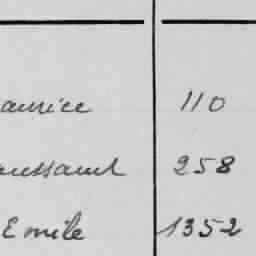 aurice 110
oussaint 258
Emile 1352